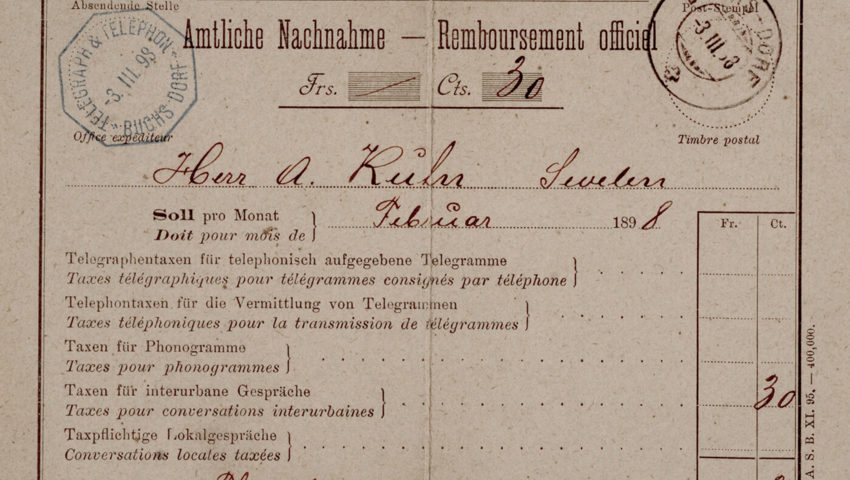 Absendende Stelle
Post-Stempel
Amtliche Nachnahme — Remboursement officiel
Frs. Cts. 30
TELEGRAPH & TELEPHON
-3.III.98
BUCHS-DORF
-3.III.98
DORF
Office expéditeur
Timbre postal
Herr A. Kuhn Sevelen
Soll pro Monat
Februar 1898
Doit pour mois de
Fr. Ct.
Telegraphentaxen für telephonisch aufgegebene Telegramme
Taxes télégraphiques pour télégrammes consignés par téléphone
Telephontaxen für die Vermittlung von Telegrammen
Taxes téléphoniques pour la transmission de télégrammes
Taxen für Phonogramme
Taxes pour phonogrammes
Taxen für interurbane Gespräche
30
Taxes pour conversations interurbaines
Taxpflichtige Lokalgespräche
Conversations locales taxées
A. S. B. XI. 95. — 400,000.